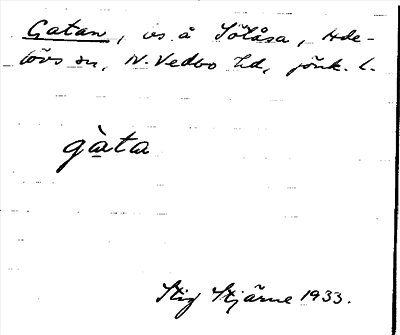 Gatan, us å Sölåsa, Hde-
lövs sn, N. Vedbo hd, Jönk. l.
gàta
Stig Stjärne 1933.